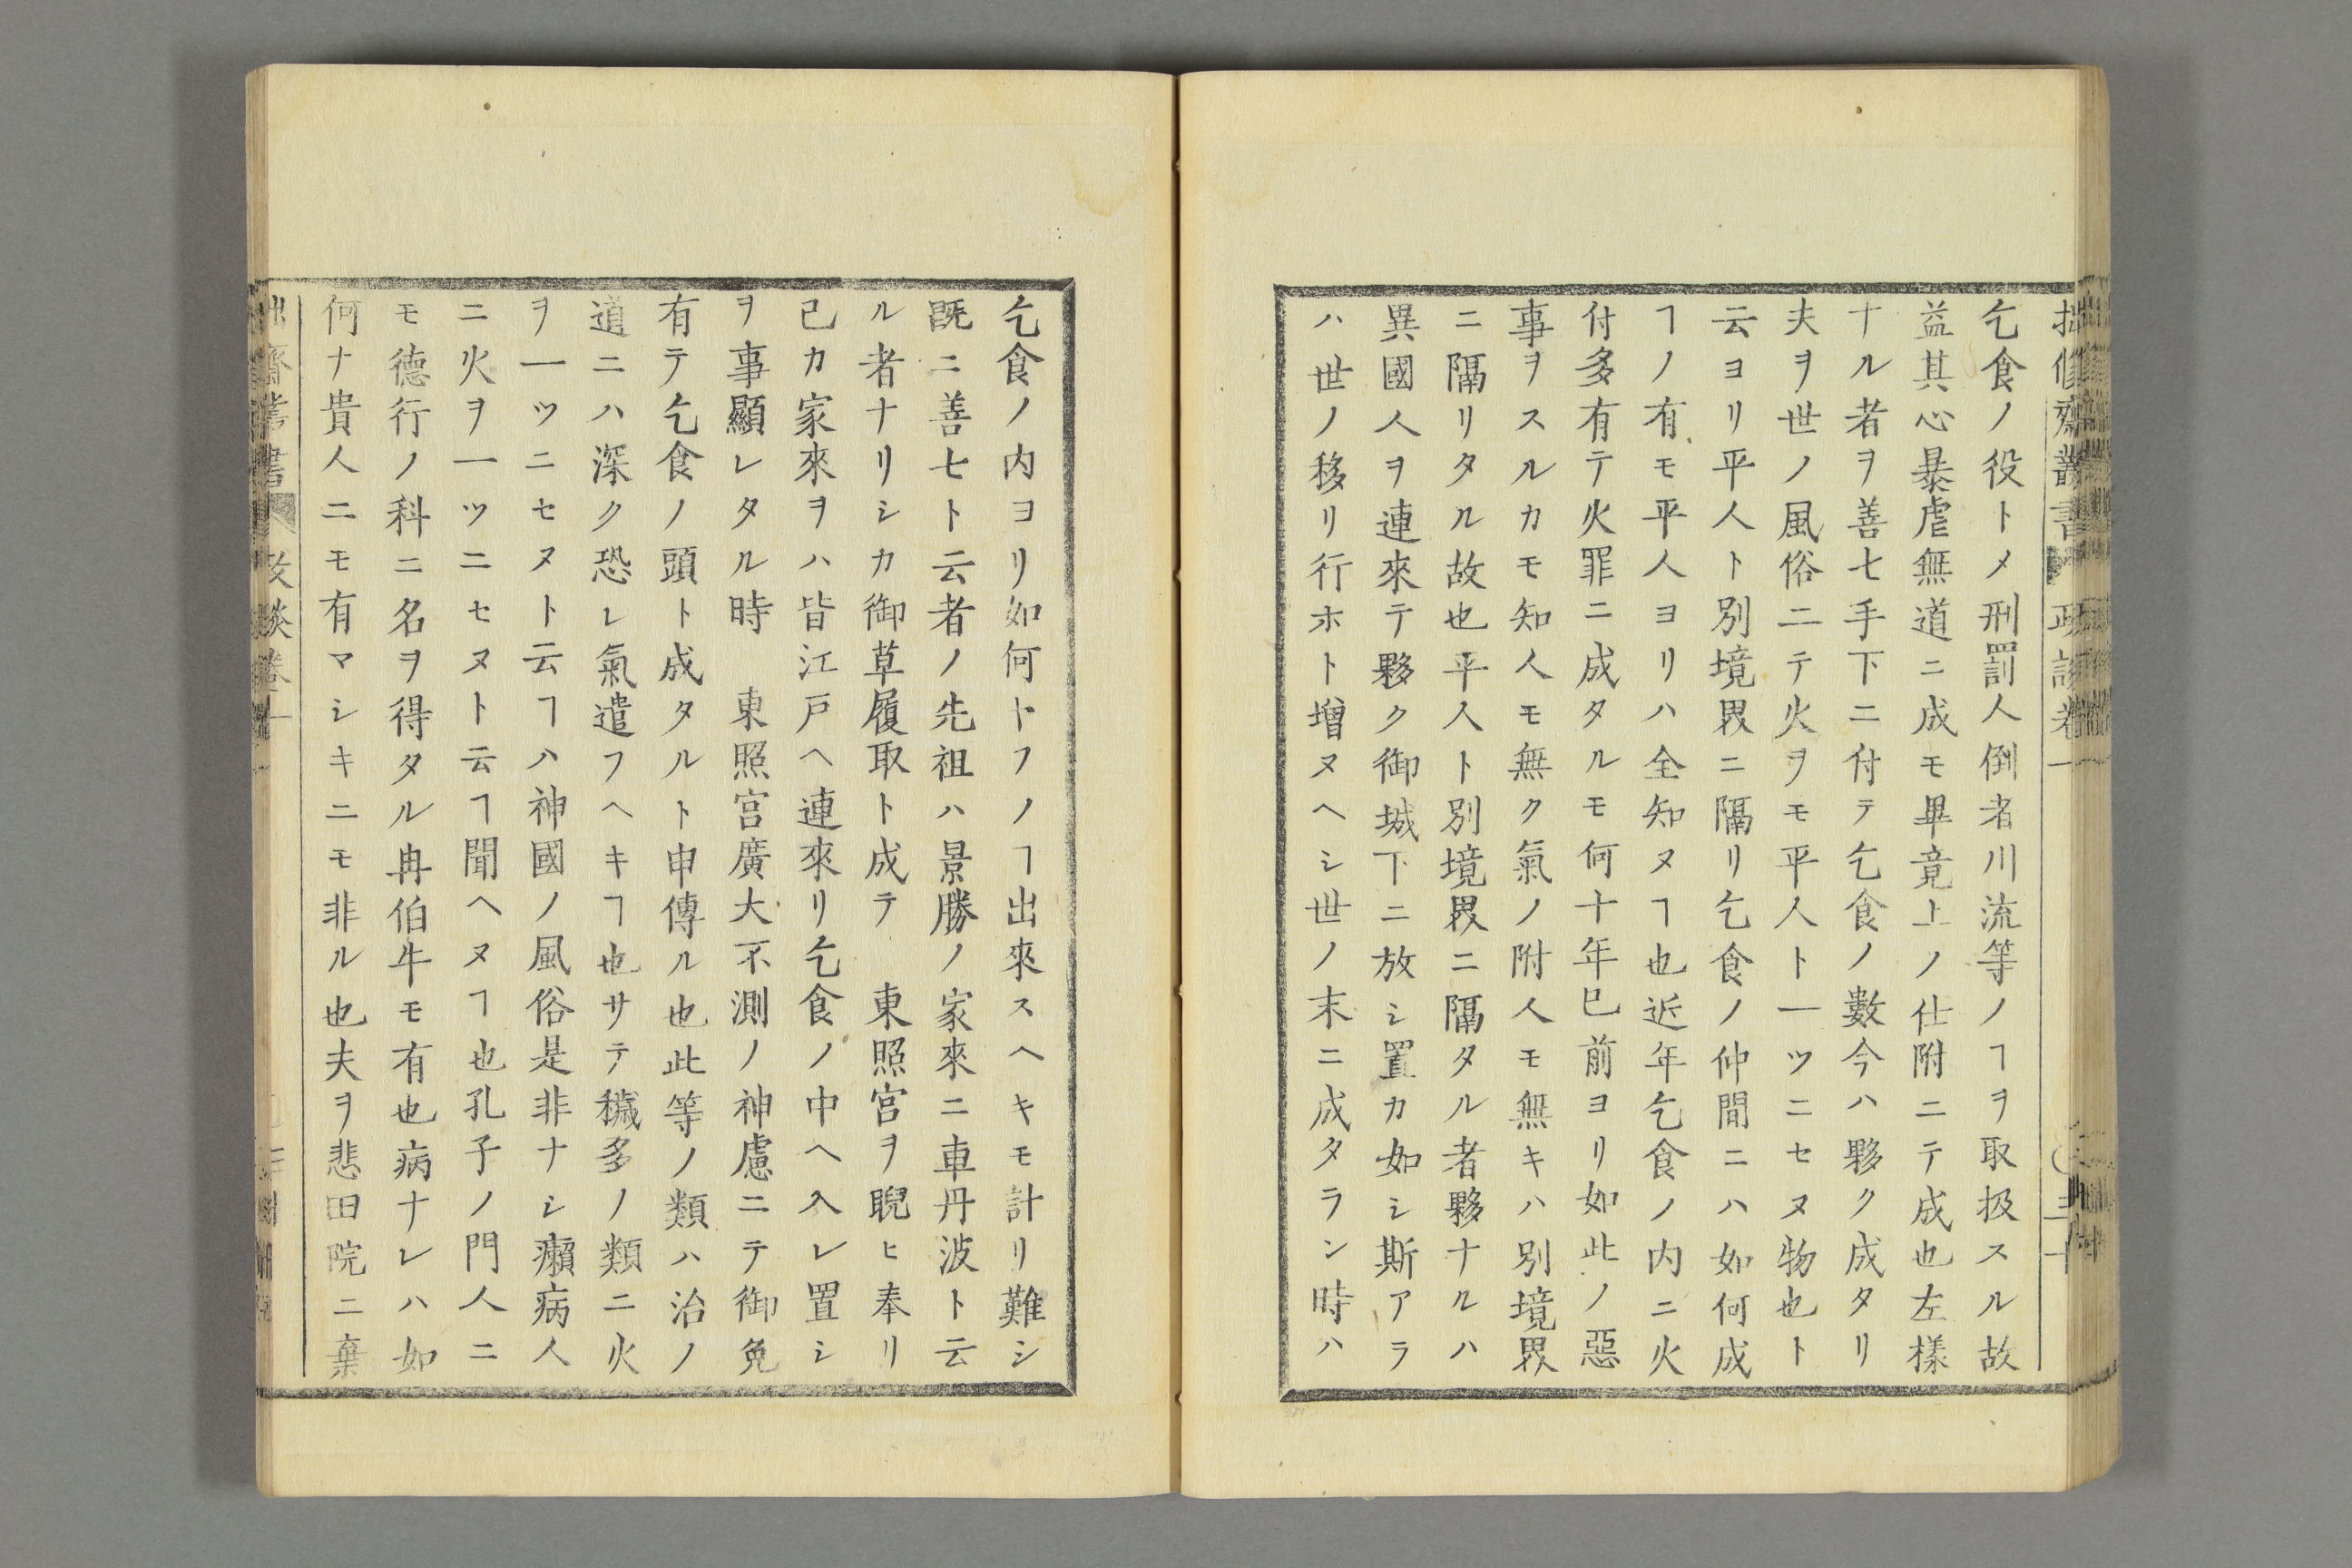 拙修齋叢書 政談卷一
乞食ノ役トメ刑罰人倒者川流等ノヿヲ取扱スル故
益其心暴虐無道ニ成モ畢竟上ノ仕附ニテ成也左樣
ナル者ヲ善七手下ニ付テ乞食ノ數今ハ夥ク成タリ
夫ヲ世ノ風俗ニテ火ヲモ平人ト一ツニセヌ物也ト
云ヨリ平人ト別境界ニ隔リ乞食ノ仲間ニハ如何成
ヿノ有モ平人ヨリハ全知ヌヿ也近年乞食ノ内ニ火
付多有テ火罪ニ成タルモ何十年已前ヨリ如此ノ惡
事ヲスルカモ知人モ無ク氣ノ附人モ無キハ別境界
ニ隔リタル故也平人ト別境界ニ隔タル者夥ナルハ
異國人ヲ連來テ夥ク御城下ニ放シ置カ如シ斯アラ
ハ世ノ移リ行ホト增ヌヘシ世ノ末ニ成タラン時ハ
乞食ノ内ヨリ如何トフノヿ出來スヘキモ計リ難シ
既ニ善七ト云者ノ先祖ハ景勝ノ家來ニ車丹波ト云
ル者ナリシカ御草履取ト成テ　東照宮ヲ睨ヒ奉リ
己カ家來ヲハ皆江戸ヘ連來リ乞食ノ中ヘ入レ置シ
ヲ事顯レタル時　東照宮廣大不測ノ神慮ニテ御免
有テ乞食ノ頭ト成タルト申傳ル也此等ノ類ハ治ノ
道ニハ深ク恐レ氣遣フヘキヿ也サテ穢多ノ類ニ火
ヲ一ツニセヌト云ヿハ神國ノ風俗是非ナシ癩病人
ニ火ヲ一ツニセヌト云ヿ聞ヘヌヿ也孔子ノ門人ニ
モ德行ノ科ニ名ヲ得タル冉伯牛モ有也病ナレハ如
何ナ貴人ニモ有マシキニモ非ル也夫ヲ悲田院ニ棄